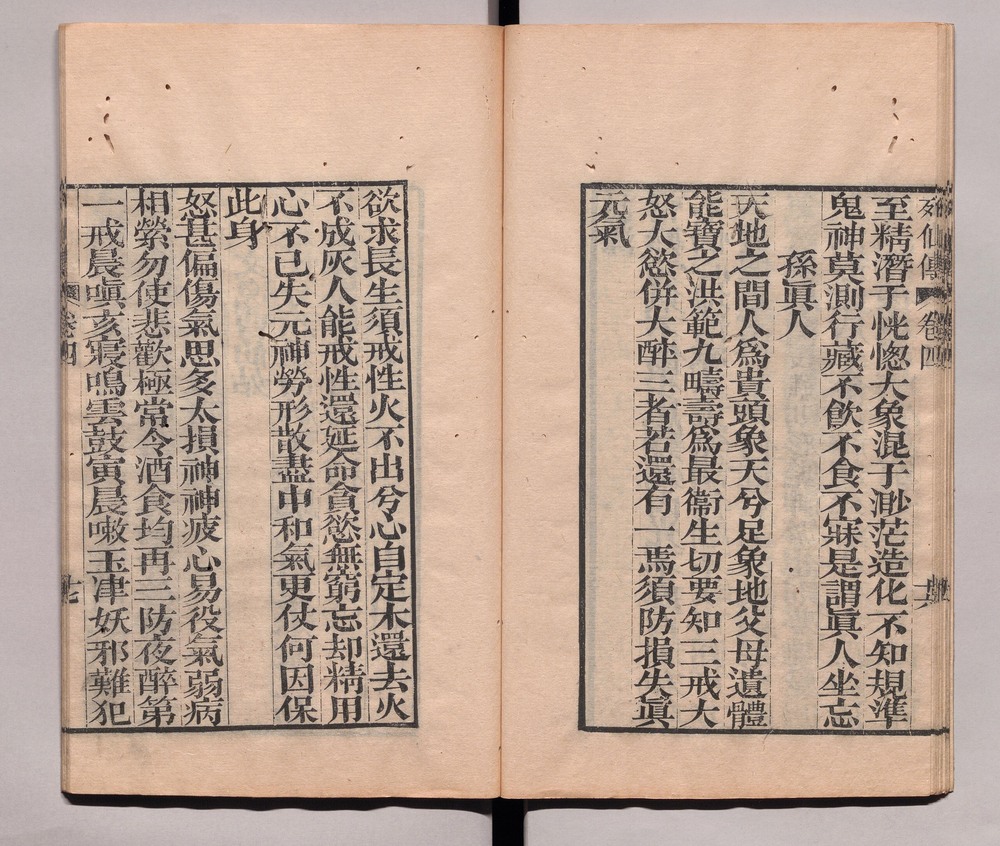 列仙傳 卷四 六
至精潛于恍惚大象混于渺茫造化不知規準
鬼神莫測行藏不飲不食不寐是謂眞人坐忘
孫眞人
天地之間人爲貴頭象天兮足象地父母遺體
能寶之洪範九疇壽爲最衞生切要知三戒大
怒大慾併大醉三者若還有一焉須防損失眞
元氣
欲求長生須戒性火不出兮心自定木還去火
不成灰人能戒性還延命貪慾無窮忘却精用
心不已失元神勞形散盡中和氣更仗何因保
此身
怒甚偏傷氣思多太損神神疲心易役氣弱病
相縈勿使悲歡極常令酒食均再三防夜醉第
一戒晨嗔亥寢鳴雲鼓寅晨嗽玉津妖邪難犯
卷四 七